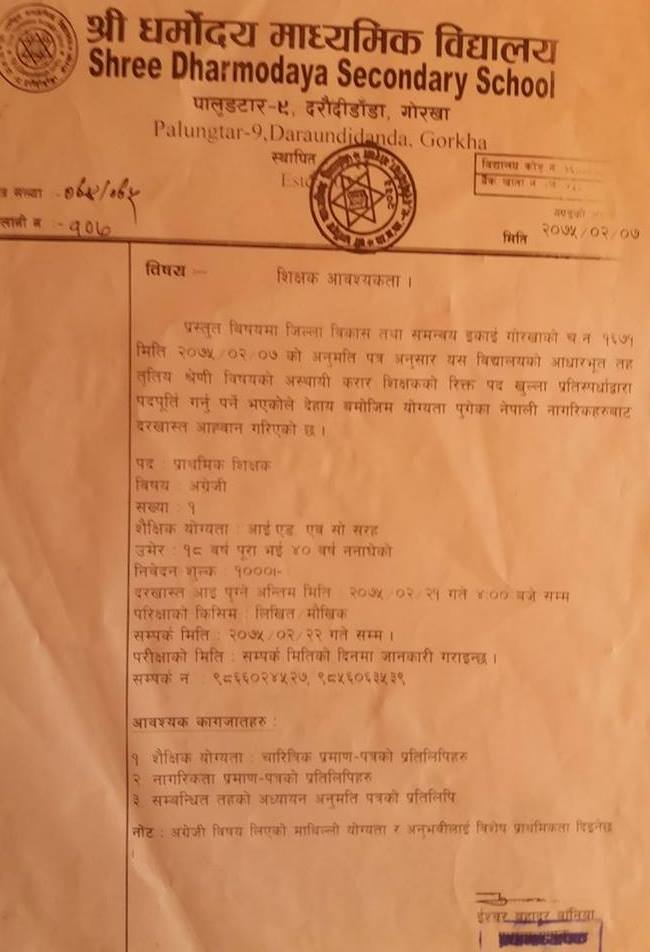 श्री धर्मोदय माध्यमिक विद्यालय
Shree Dharmodaya Secondary School
पालुङटार-९, दरौदीडाँडा, गोरखा
Palungtar-9,Daraundidanda, Gorkha
स्थापित
विद्यालय कोड न
बैंक खाता न
संख्या :-०७४/०७५
चलानी न :- १०७
मिति २०७५/०२/०७
विषय :- शिक्षक आवश्यकता ।
प्रस्तुत बिषयमा जिल्ला विकास तथा समन्वय इकाई गोरखाको च न १६७१
मिति २०७५/०२/०७ को अनुमति पत्र अनुसार यस विद्यालयको आधारभूत तह
तृतिय श्रेणी विषयको अस्थायी करार शिक्षकको रिक्त पद खुल्ला प्रतिस्पर्धाद्वारा
पदपूर्ति गर्नु पर्ने भएकोले देहाय बमोजिम योग्यता पुगेका नेपाली नागरिकहरुबाट
दरखास्त आह्वान गरिएको छ ।
पद : प्राथमिक शिक्षक
विषय : अंग्रेजी
सख्या : १
शैक्षिक योग्यता : आई एड एव सो सरह
उमेर : १८ वर्ष पूरा भई ४० वर्ष ननाघेको
निवेदन शुल्क : १०००।-
दरखास्त आइ पुग्ने अन्तिम मिति : २०७५/०२/२१ गते ४:०० बजे सम्म
परिक्षाको किसिम : लिखित/मौखिक
सम्पर्क मिति : २०७५/०२/२२ गते सम्म ।
परीक्षाको मिति : सम्पर्क मितिको दिनमा जानकारी गराइन्छ ।
सम्पर्क न : ९८६६०२४५२७, ९८५६०६३५३९
आवश्यक कागजातहरु :
१ शैक्षिक योग्यता : चारित्रिक प्रमाण-पत्रको प्रतिलिपिहरु
२ नागरिकता प्रमाण-पत्रको प्रतिलिपिहरु
३ सम्बन्धित तहको अध्यायन अनुमति पत्रको प्रतिलिपि
नोट : अंग्रेजी विषय लिएको माथिल्लो योग्यता र अनुभवीलाई विशेष प्राथमिकता दिइनेछ
।
ईश्वर बहादुर बानिया
प्रधानाध्यापक